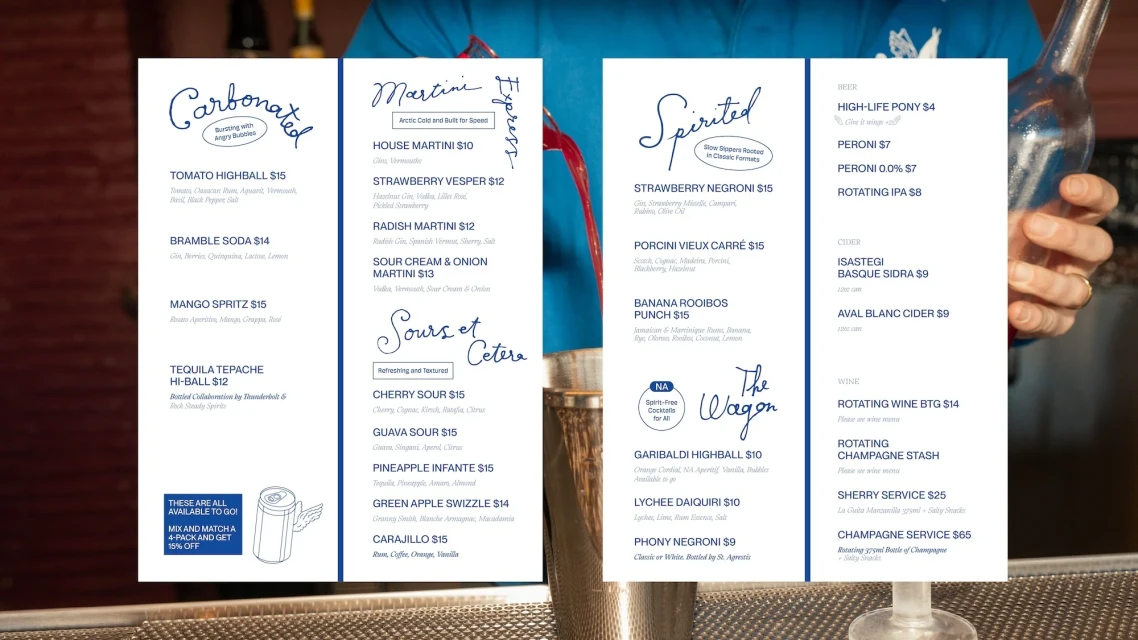 Carbonated
Bursting with
Angry Bubbles
TOMATO HIGHBALL $15
Tomato, Oaxacan Rum, Aquavit, Vermouth,
Basil, Black Pepper, Salt
BRAMBLE SODA $14
Gin, Berries, Quinquina, Lactose, Lemon
MANGO SPRITZ $15
Rosato Aperitivo, Mango, Grappa, Rosé
TEQUILA TEPACHE
HI-BALL $12
Bottled Collaboration by Thunderbolt &
Rock Steady Spirits
THESE ARE ALL
AVAILABLE TO GO!
MIX AND MATCH A
4-PACK AND GET
15% OFF
Martini Express
Arctic Cold and Built for Speed
HOUSE MARTINI $10
Gins, Vermouths
STRAWBERRY VESPER $12
Hazelnut Gin, Vodka, Lillet Rosé,
Pickled Strawberry
RADISH MARTINI $12
Radish Gin, Spanish Vermut, Sherry, Salt
SOUR CREAM & ONION
MARTINI $13
Vodka, Vermouth, Sour Cream & Onion
Sours et
Cetera
Refreshing and Textured
CHERRY SOUR $15
Cherry, Cognac, Kirsch, Ratafia, Citrus
GUAVA SOUR $15
Guava, Singani, Aperol, Citrus
PINEAPPLE INFANTE $15
Tequila, Pineapple, Amaro, Almond
GREEN APPLE SWIZZLE $14
Granny Smith, Blanche Armagnac, Macadamia
CARAJILLO $15
Rum, Coffee, Orange, Vanilla
Spirited
Slow Sippers Rooted
in Classic Formats
STRAWBERRY NEGRONI $15
Gin, Strawberry Mistelle, Campari,
Rubino, Olive Oil
PORCINI VIEUX CARRÉ $15
Scotch, Cognac, Madeira, Porcini,
Blackberry, Hazelnut
BANANA ROOIBOS
PUNCH $15
Jamaican & Martinique Rums, Banana,
Rye, Oloroso, Rooibos, Coconut, Lemon
NA
Spirit-Free
Cocktails
for All
The
Wagon
GARIBALDI HIGHBALL $10
Orange Cordial, NA Aperitif, Vanilla, Bubbles
Available to go
LYCHEE DAIQUIRI $10
Lychee, Lime, Rum Essence, Salt
PHONY NEGRONI $9
Classic or White. Bottled by St. Agrestis
BEER
HIGH-LIFE PONY $4
Give it wings +2
PERONI $7
PERONI 0.0% $7
ROTATING IPA $8
CIDER
ISASTEGI
BASQUE SIDRA $9
12oz can
AVAL BLANC CIDER $9
12oz can
WINE
ROTATING WINE BTG $14
Please see wine menu
ROTATING
CHAMPAGNE STASH
Please see wine menu
SHERRY SERVICE $25
La Guita Manzanilla 375ml + Salty Snacks
CHAMPAGNE SERVICE $65
Rotating 375ml Bottle of Champagne
+ Salty Snacks